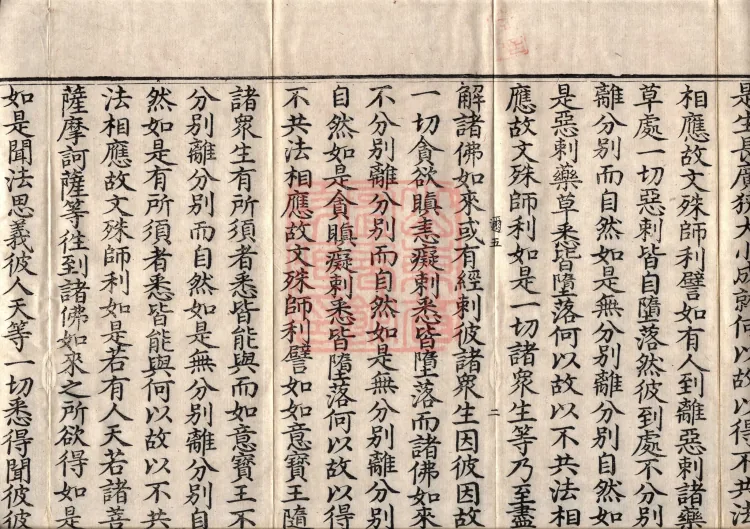 是生長廣狹大小成就何以故以得不共法
相應故文殊師利譬如有人到離惡刺諸藥
草處一切惡刺皆自墮落然彼到處不分別
離分別而自然如是無分別離分別自然如
是惡刺藥草悉皆墮落何以故以不共法相
應故文殊師利如是一切諸眾生等乃至盡
彌五
二
解諸佛如來或有經剌彼諸眾生因彼因故
一切貪欲瞋恚癡刺悉皆墮落而諸佛如來
不分別離分別而自然如是無分別離分別
自然如是貪瞋癡刺悉皆墮落何以故以得
不共法相應故文殊師利譬如如意寶王隨
諸眾生有所須者悉皆能與而如意寶王不
分別離分別而自然如是無分別離分別自
然如是有所須者悉皆能與何以故以不共
法相應故文殊師利如是若有人天若諸善
薩摩訶薩等往到諸佛如來之所欲得如是
如是聞法思義彼人天等一切悉得聞彼彼